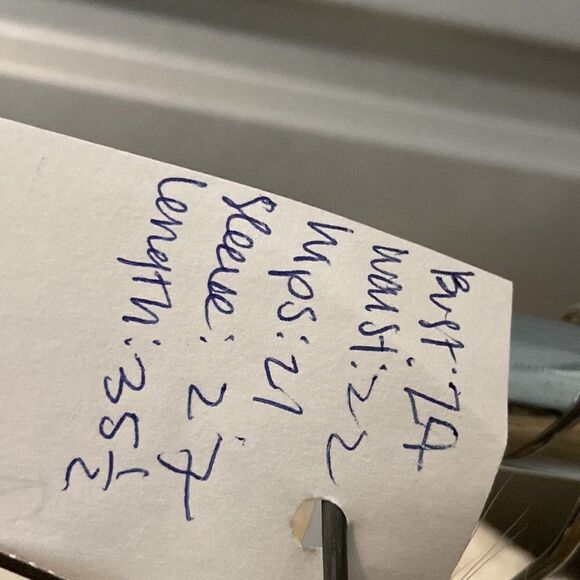 Bust: 24
waist: 22
hips: 21
Sleeve: 27
Length: 35 1/2